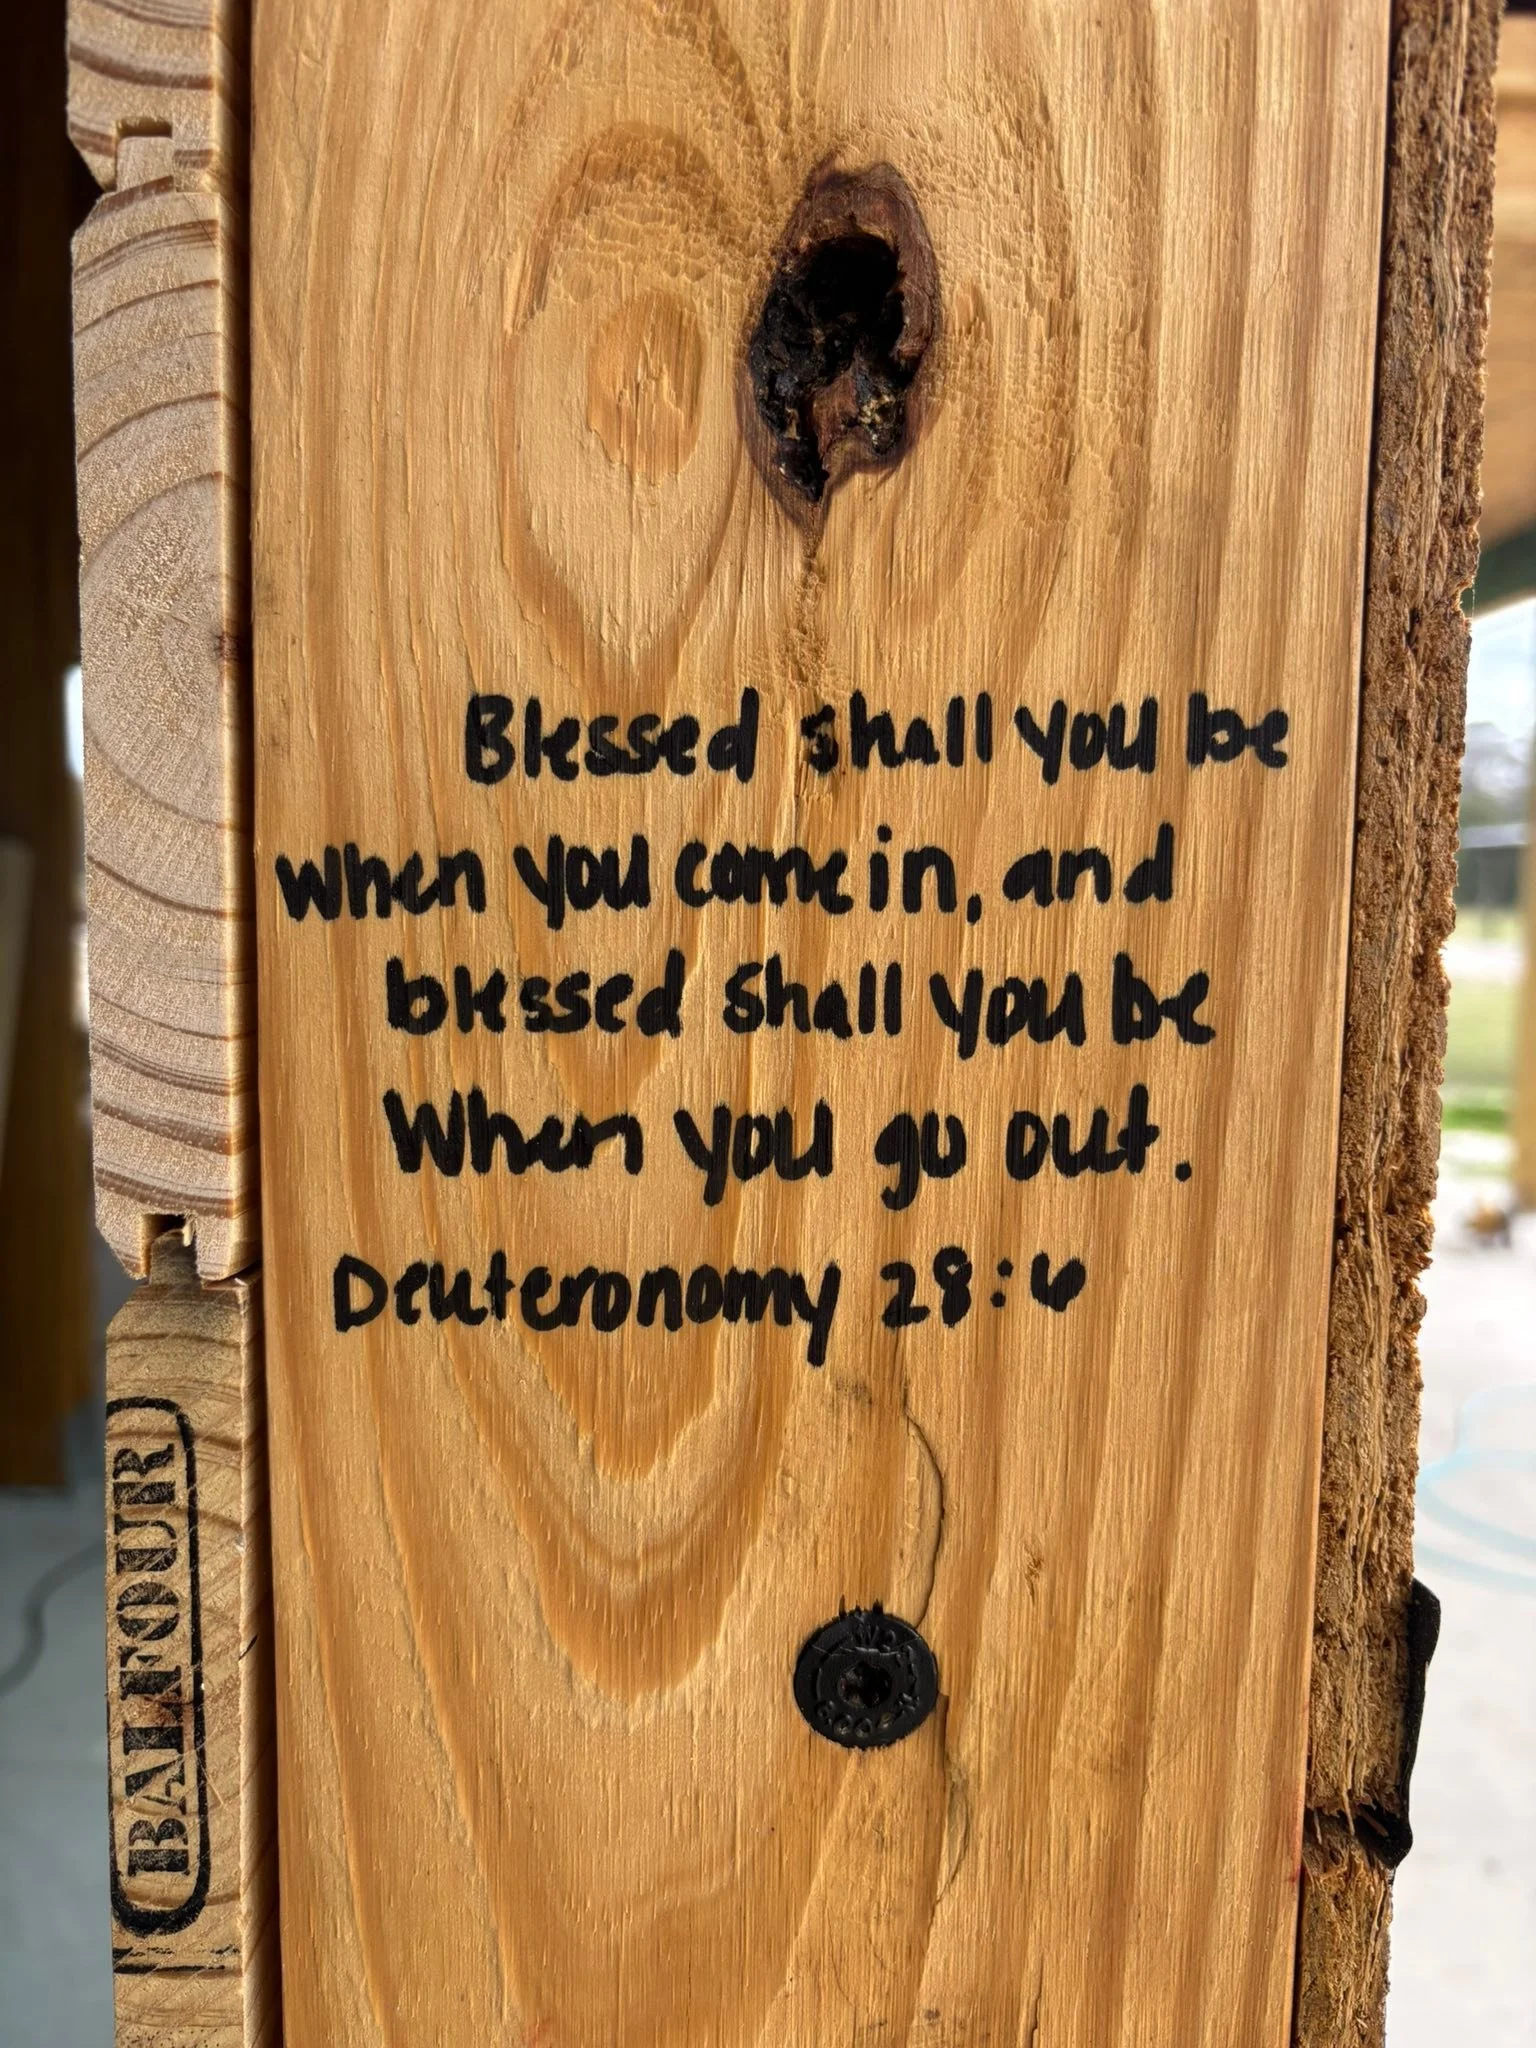 Blessed shall you be
when you come in, and
blessed shall you be
When you go out.
Deuteronomy 28:6
BALFOUR